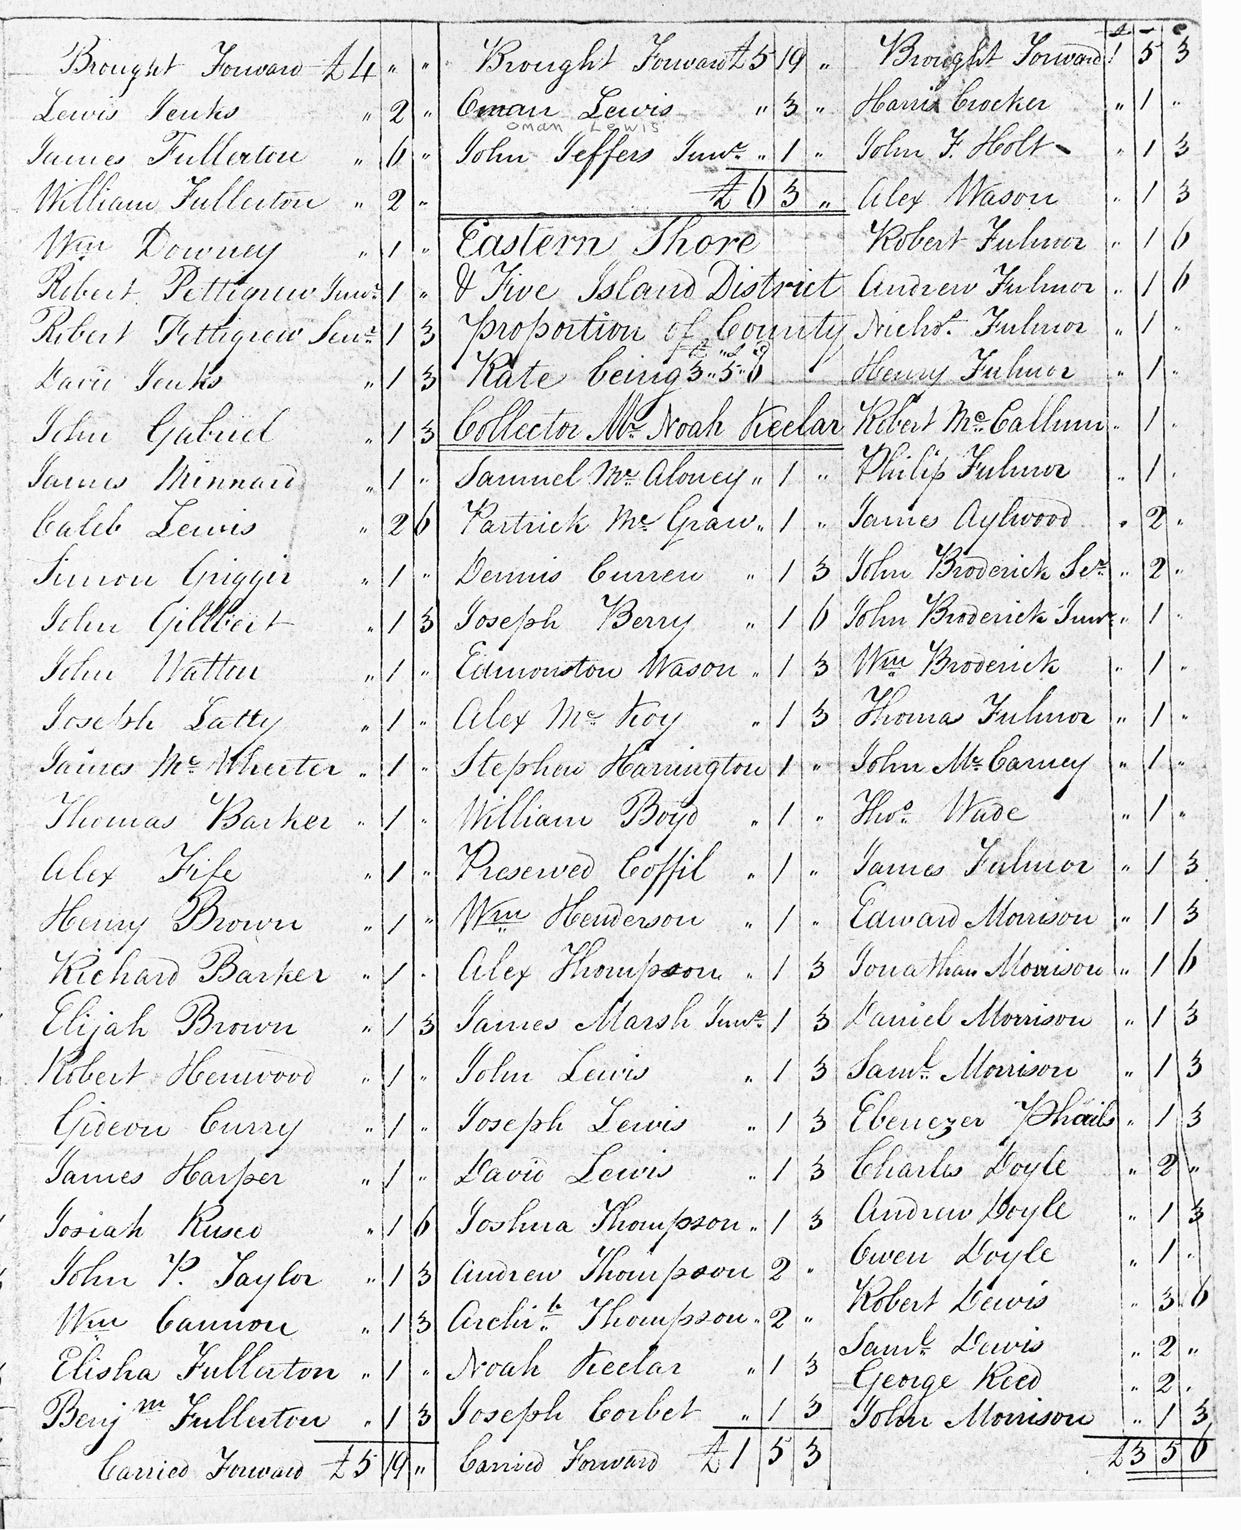 Brought Forward £4 " "
Lewis Jenks " 2 "
James Fullerton " 6 "
William Fullerton " 2 "
Wm Downey " 1 "
Robert Pettigrew Junr. 1 "
Robert Pettigrew Senr. 1 3
David Jenks " 1 3
John Gabriel " 1 3
James Minnard " 1 "
Caleb Lewis " 2 6
Simon Griggir " 1 "
John Gillbert " 1 3
John Watton " 1 "
Joseph Latty " 1 "
James Mc Wherter " 1 "
Thomas Barker " 1 "
Alex Fife " 1 "
Henry Brown " 1 "
Richard Barker " 1 "
Elijah Brown " 1 3
Robert Henwood " 1 "
Gideon Curry " 1 "
James Harper " 1 "
Josiah Rusco " 1 6
John P. Taylor " 1 3
Wm Cannon " 1 3
Elisha Fullerton " 1 "
Benjm Fullerton " 1 3
Carried Forward £5 19 "
Brought Forward £5 19 "
Oman Lewis " 3 "
Oman Lewis
John Jeffers Junr. " 1 "
£6 3 "
Eastern Shore
& Five Island District
proportion of County
£ s d
Rate being 3" 5" 6
Collector Mr. Noah Keelar
Samuel Mc Aloney " 1 "
Partrick Mc Graw " 1 "
Dennis Curren " 1 3
Joseph Berry " 1 6
Edmonston Wason " 1 3
Alex Mc Koy " 1 3
Stephen Harrington 1 "
William Boyd " 1 "
Preserved Coffil " 1 "
Wm Henderson " 1 "
Alex Thompson " 1 3
James Marsh Junr. 1 3
John Lewis " 1 3
Joseph Lewis " 1 3
David Lewis " 1 3
Joshua Thompson " 1 3
Andrew Thompson 2 "
Archid. Thompson " 2 "
Noah Keelar " 1 3
Joseph Corbet " 1 3
Carried Forward £1 5 3
Brought Forward 1 5 3
Harris Crocker " 1 "
John F. Holt " 1 3
Alex Wason " 1 3
Robert Fulmor " 1 6
Andrew Fulmor " 1 6
Nichos. Fulmor " 1 "
Henry Fulmor " 1 "
Robert Mc Callum " 1 "
Philip Fulmor " 1 "
James Aylwood " 2 "
John Broderick Sr. " 2 "
John Broderick Junr. " 1 "
Wm Broderick " 1 "
Thoma Fulmor " 1 "
John Mc Carney " 1 "
Thos. Wade " 1 "
James Fulmor " 1 3
Edward Morrison " 1 3
Jonathan Morrison " 1 6
Daniel Morrison " 1 3
Saml. Morrison " 1 3
Ebenezer Phails " 1 3
Charles Doyle " 2 "
Andrew Doyle " 1 3
Owen Doyle " 1 "
Robert Dewis " 3 6
Saml. Dewis " 2 "
George Reed " 2 "
John Morrison " 1 3
£3 5 6